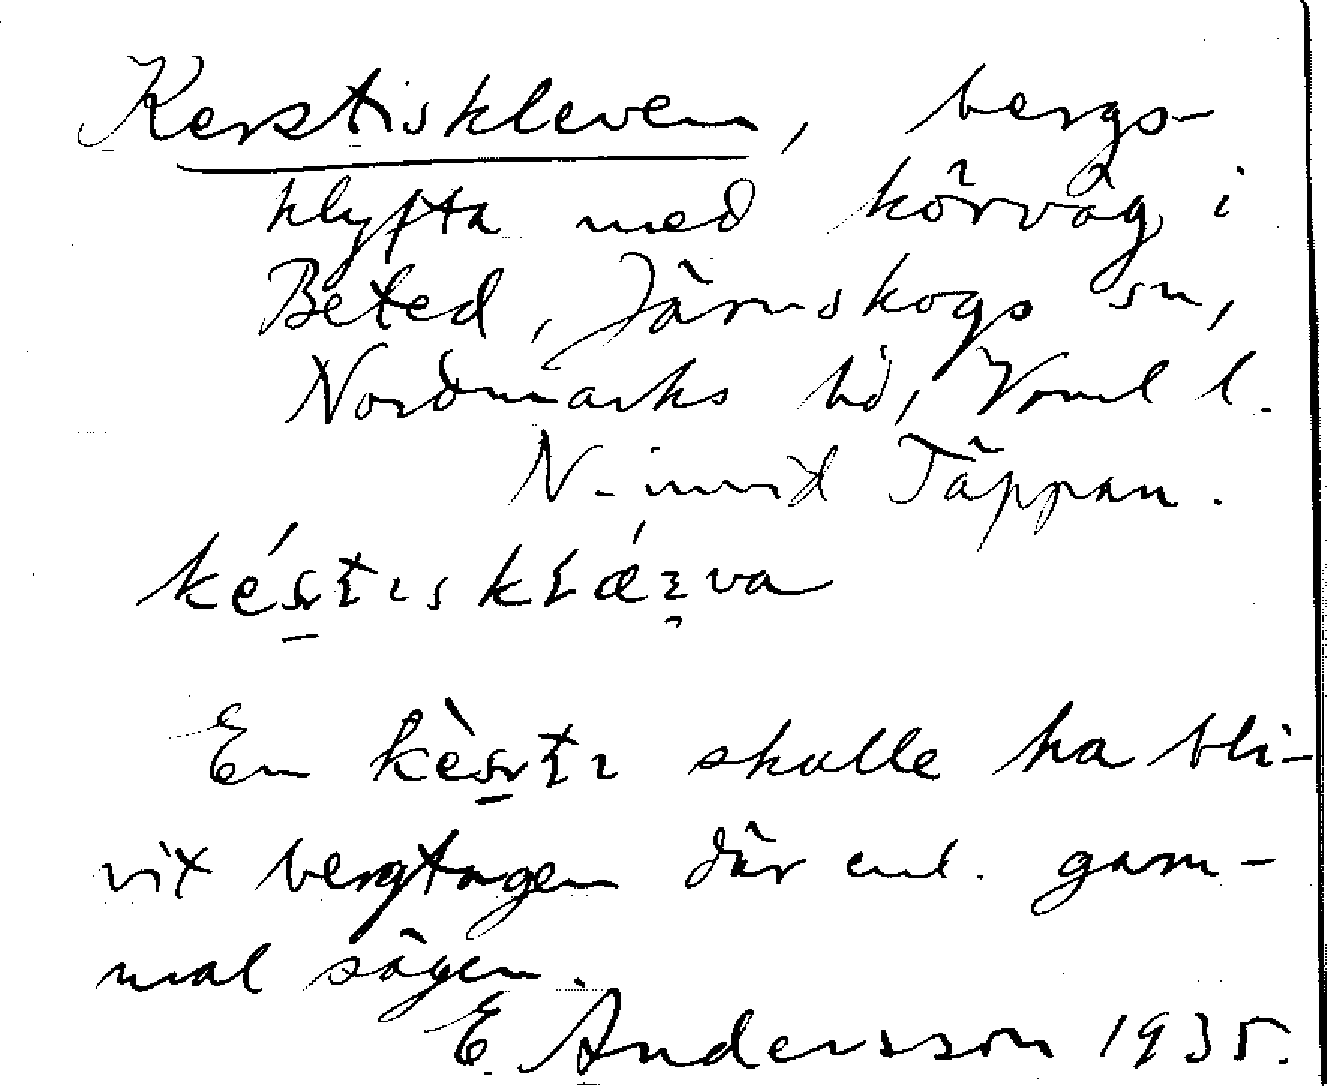 Kerstiskleven, bergs-
klyfta med körväg i
Beted, Järnskogs sn,
Nordmarks hd, Vrml l.
N. invid Täppan.
En skulle ha bli-
vit bergtagen där enl. gam-
mal sägen.
E. Andersson 1935.